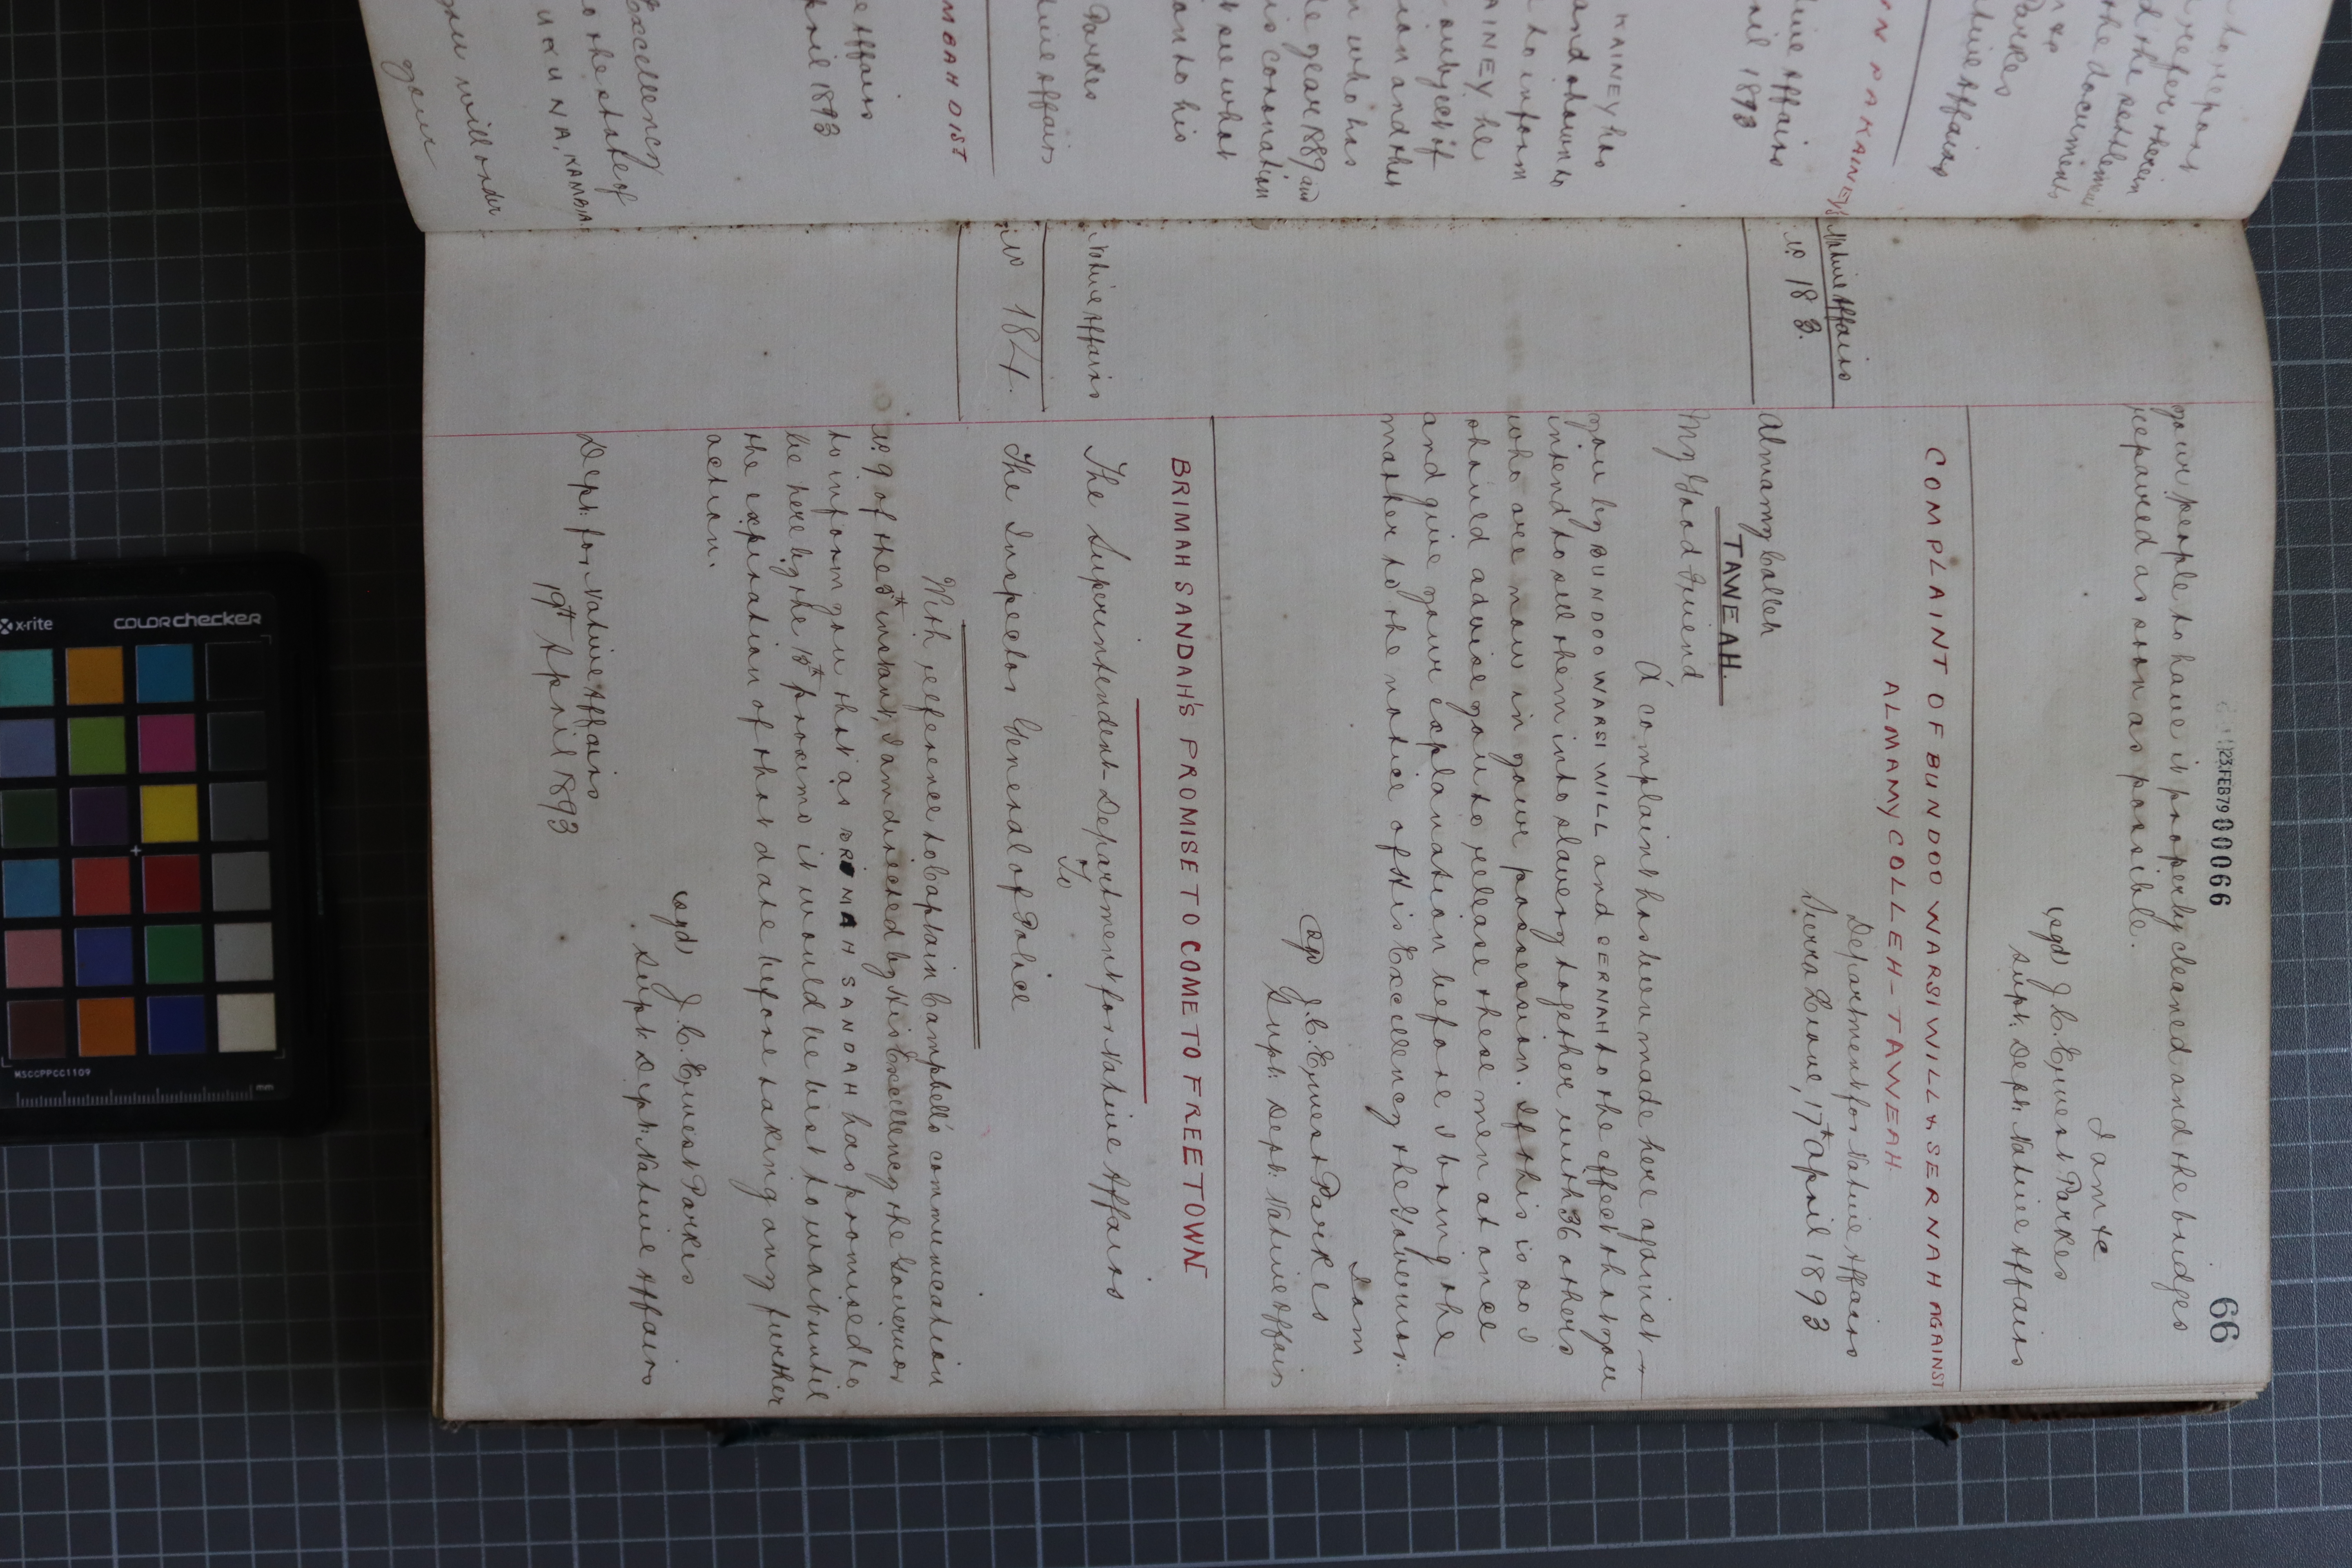 66
23 FEB 79 00066
your people to have it properly cleaned and the bridges
repaired as soon as possible.
I am &c
(sgd) J. C. Ernest Parkes
Supt: Dept: Native Affairs
COMPLAINT OF BUNDOO WARSI WILL & SERNAH AGAINST
ALMAMY COLLEH - TAWEAH.
Native Affairs
No 183.
Department for Native Affairs
Sierra Leone, 17th April 1893
Almamy Colleh
TAWEAH.
My Good Friend
A complaint has been made here against
you by BUNDOO WARSI WILL and SERNAH to the effect that you
intend to sell them into slavery together with 36 others
who are now in your possession. If this is so I
should advise you to release these men at once
and give your explanation before I bring the
matter to the notice of His Excellency the Governor.
I am
(sgd) J. C. Ernest Parkes
Supt: Dept: Native Affairs
BRIMAH SANDAH'S PROMISE TO COME TO FREETOWN
Native Affairs
The Superintendent - Department for Native Affairs
To
No 184.
The Inspector General of Police
With reference to Captain Campbell's communication
No 9 of the instant, I am directed by His Excellency the Governor
to inform you that as BRIMAH SANDAH has promised to
be here by the 15th proximo it would be best to wait until
the expiration of that date before taking any further
action.
(sgd) J. C. Ernest Parkes
Supt: Dept: Native Affairs
Dept: for Native Affairs
19th April 1893
KAINEY has
and shown to
to inform
AINEY he
subject of
who has
year 1889 and
his coronation
on to his
Parkes
MBAH DIST
April 1893
Excellency
to the state of
KAMBIA
you will order
your
x-rite
COLORchecker
MSCCPPCC1109
mm